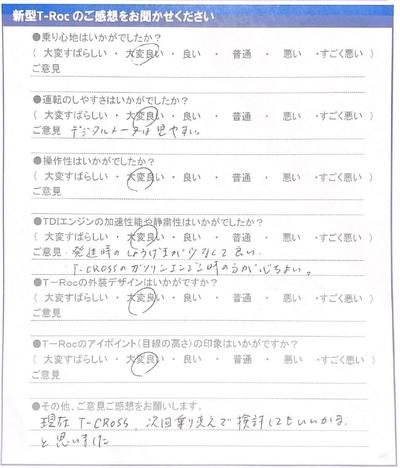 新型T-Roc のご感想をお聞かせください
●乗り心地はいかがでしたか？
( 大変すばらしい ・ 大変良い ・ 良い ・ 普通 ・ 悪い ・すごく悪い )
ご意見
●運転のしやすさはいかがでしたか？
( 大変すばらしい ・ 大変良い ・ 良い ・ 普通 ・ 悪い ・すごく悪い )
ご意見 デジタルメータは見やすい。
●操作性はいかがでしたか？
( 大変すばらしい ・ 大変良い ・ 良い ・ 普通 ・ 悪い ・すごく悪い )
ご意見
●TDIエンジンの加速性能や静粛性はいかがでしたか？
( 大変すばらしい ・ 大変良い ・ 良い ・ 普通 ・ 悪い ・すごく悪い )
ご意見 ・発進時のしょうげきが少なくて良い
・T-CROSSのガソリンエンジン時の方が心ちよい。
●T－Rocの外装デザインはいかがですか？
( 大変すばらしい ・ 大変良い ・ 良い ・ 普通 ・ 悪い ・すごく悪い )
ご意見
●T－Rocのアイポイント(目線の高さ)の印象はいかがですか？
( 大変すばらしい ・ 大変良い ・ 良い ・ 普通 ・ 悪い ・すごく悪い )
ご意見
●その他、ご意見ご感想をお願いします。
現在 T-CROSS、次回乗り換えで検討してもいいかな
と思いました